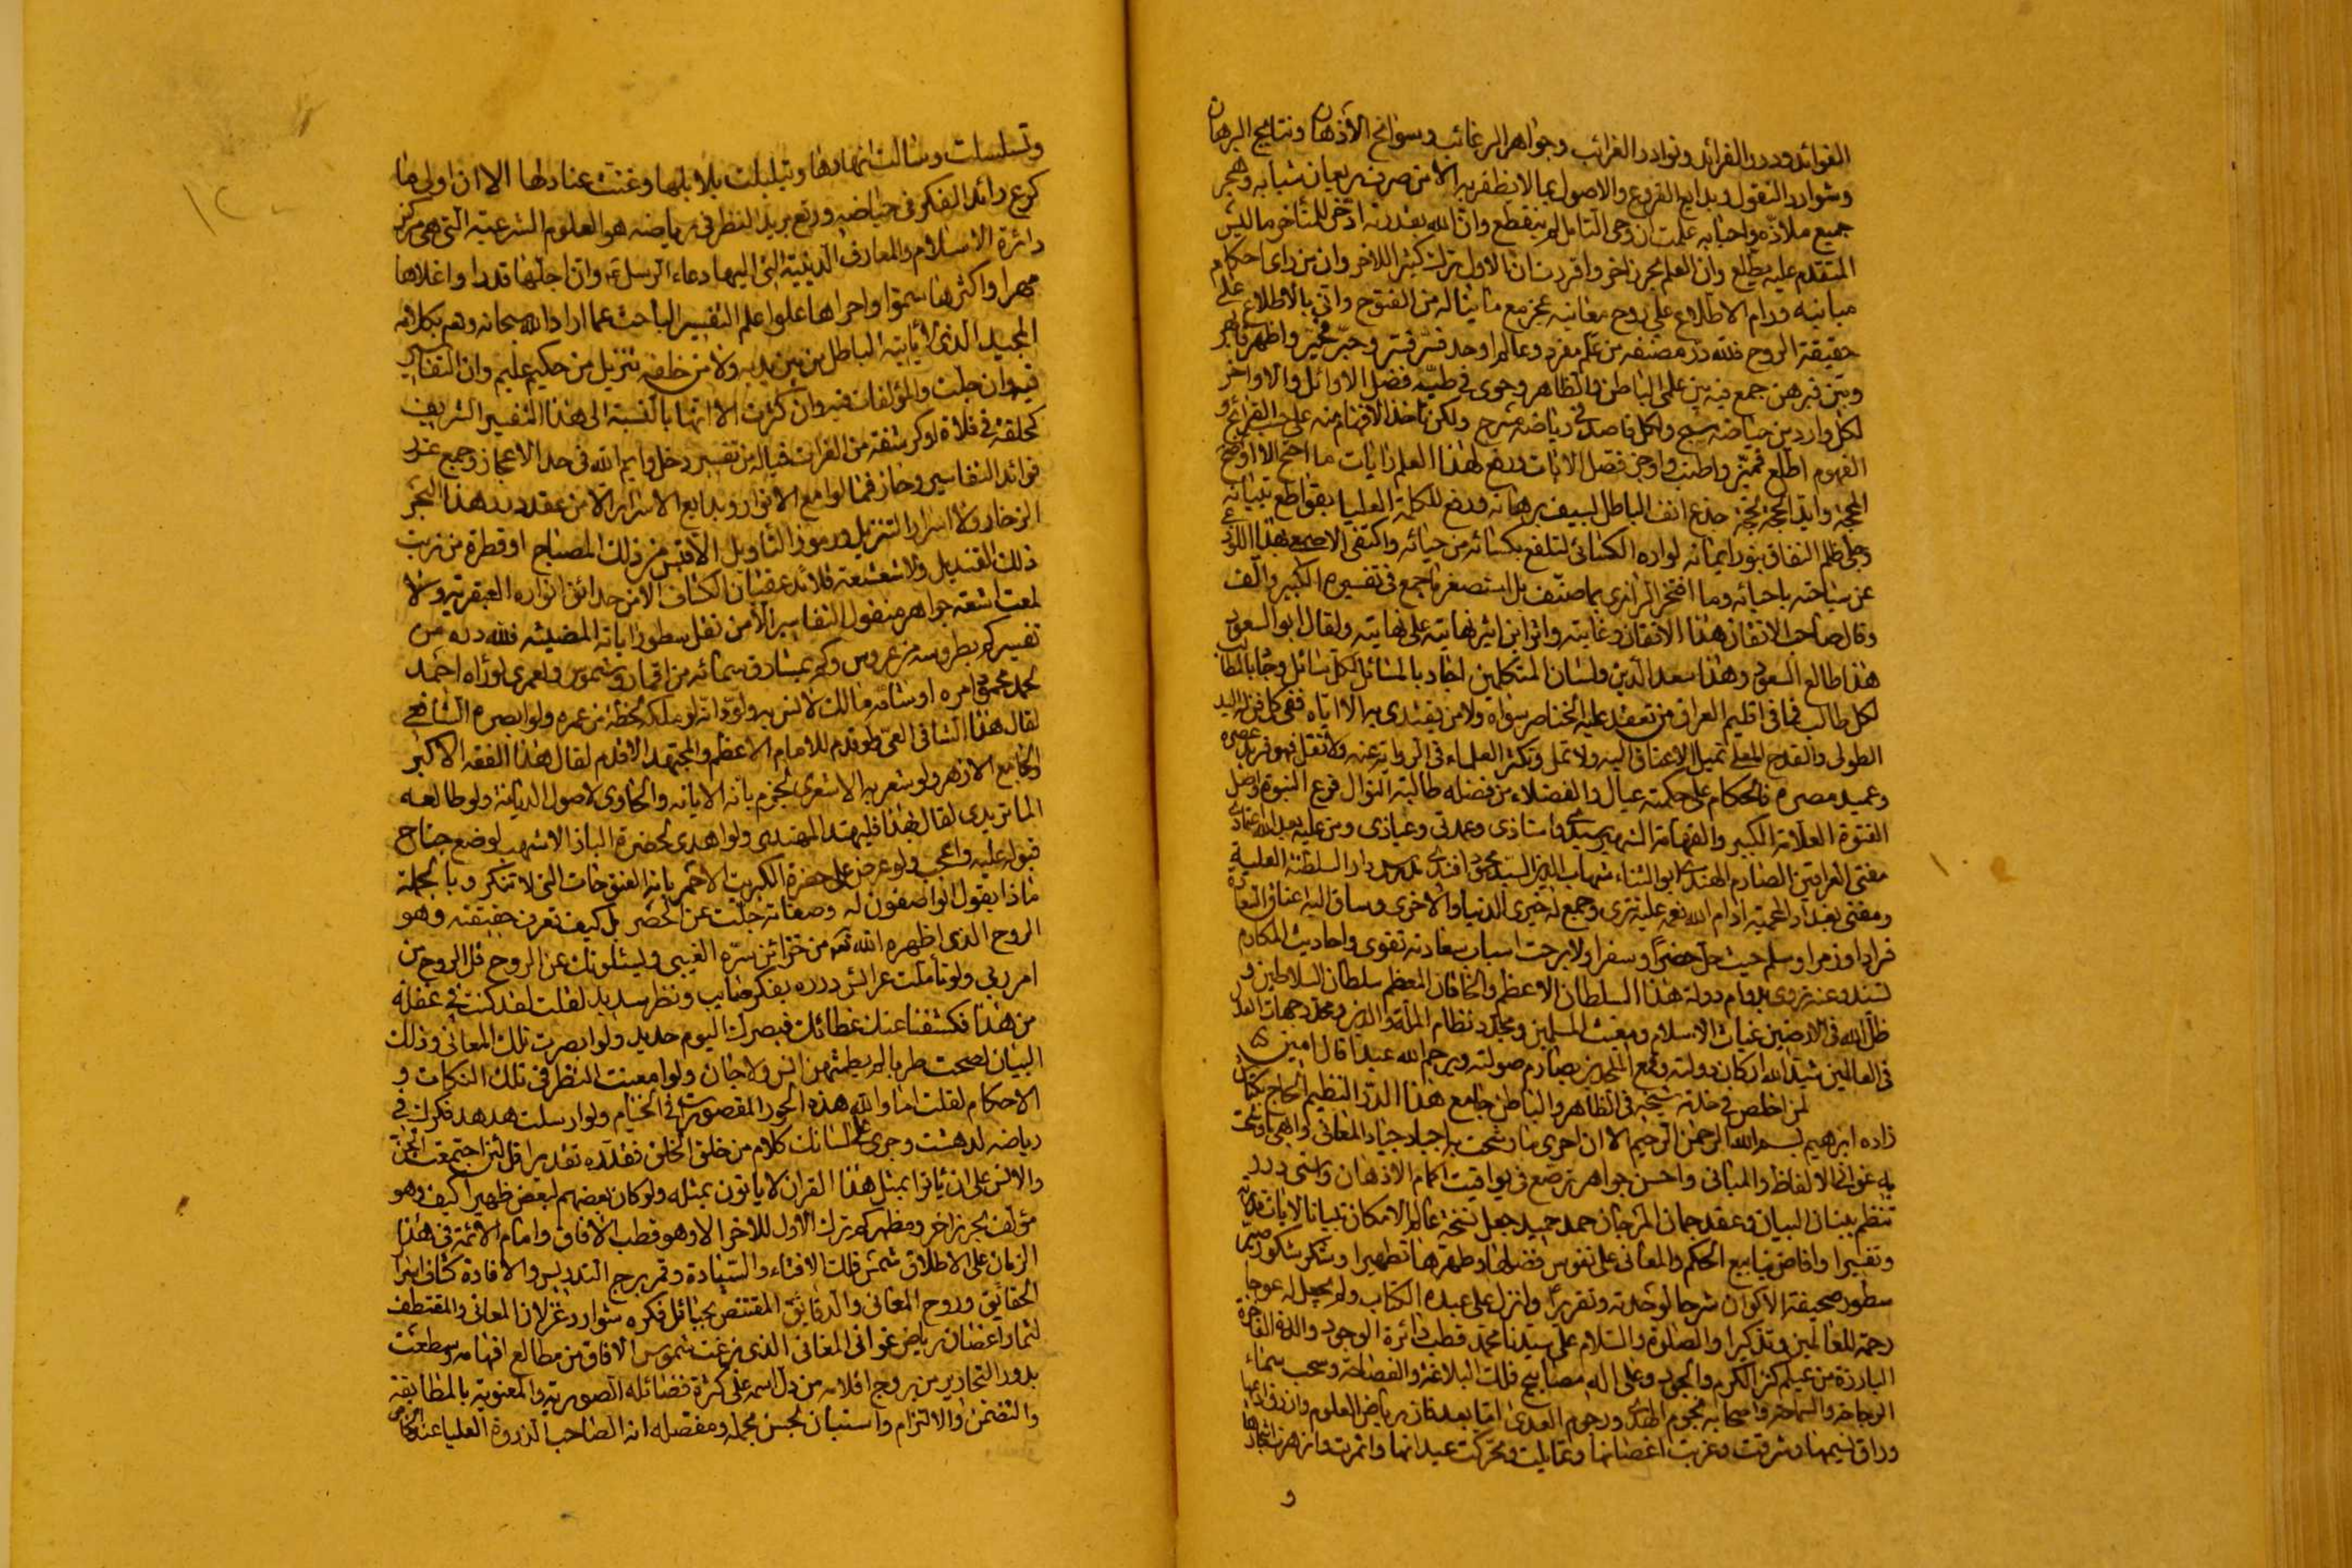 الفوائد ودرر الفرائد ونوادر الغرائب وجواهر الرغائب وسوانح الأذهان ونتايج البرهان
وشوارد النقول وبدايع الفروع والاصول بما لا يظفر به الا من صرف ريعان شبابه وهجر
جميع ملاذه واحبابه علمت ان وحي التامل لم ينقطع وان الله بقدرته ادخر للمتأخر ما ليس
المتقدم عليه يطلع وان العلم بحر زاخر واقررت ان الاول ترك كثيرا للاخر وان من راى احكام
مبانيه ورام الاطلاع على روح معانيه عجز مع ما يناله من الفتوح واتى بالاطلاع على
حقيقة الروح فلله در مصنفه من علم مفرد وعالم اوحد فسر وحبر فحير واظهر
وبين فبرهن جمع فيه بين علمي الباطن والظاهر وحوى في طيه فضل الاوائل والاواخر
لكل وارد من حياضه ولكل قاصد في رياضه مسرح ولكن تأخذ الافهام منه على حسب القرائح و
الفهوم اطلع فميز واطنب واوجز فصل الايات ورفع لهذا العلم رايات ما احتج الا اوضح
المحجة وايد الحجة جدع انف الباطل بسيف برهانه ورفع للكلمة العليا بقواطع تبيانه
وجلى ظلم النفاق بنور ايمانه لو اره الكسائي لتلفع بكسائه من حيائه واكتفى الاصمعي
عن سياحته باحيائه وما افتخر الرازي بما صنف بل استصغر ما جمع في تفسيره الكبير والف
وقال صاحب الاتقان هذا الاتقان وغايته واثر ابن اثير نهايته على نهايته ولقال ابو السعود
هذا طالع السعود وهذا سعد الدين ولسان المتكلمين اجاد بالمسائل لكل سائل وجاء بالمطالب
لكل طالب فما في اقليم العراق من تعقد عليه الخناصر سواه ولا من يقتدى به الا اياه ففي كل فن له اليد
الطولى والقدح المعلى تميل الاعناق اليه ولا تمل وتكثر العلماء في الرواية عنه ولا تقل فهو فريد عصره
وعميد مصره فالحكام على حكمته عيال والفضلاء من فضله طالبة النوال فرع النبوة واصل
الفتوة العلامة الكبير والفهامة الشهير سيدي واستاذي وعمدتي وعياذي ومن عليه بعد الله اعتمادي
مفتي العراقين الصارم الهندي ابو الثناء شهاب الدين السيد محمود افندي مدرس دار السلطنة العلية
ومفتي بغداد المحمية ادام الله نعمه عليه تترى وجمع له خيري الدنيا والاخرى وساق اليه اعناق السعادة
فرادا وزمرا وسلم حيث حل حضرا وسفرا ولا برحت اسباب سعادته تقوى واحاديث المكارم
تسند وعنه تروى بدوام دولة هذا السلطان الاعظم والخاقان المعظم سلطان السلاطين و
ظل الله في الارضين غياث الاسلام ومغيث المسلمين ومجدد نظام الملة والدين ومحدد جهات العدل
في العالمين شيد الله اركان دولته وقمع الملحدين بصارم صولته ويرحم الله عبدا قال امين
لمن اخلص في خلته شيخه في الظاهر والباطن جامع هذا الدر النظيم الحاج بكتاش
زاده ابرهيم بسم الله الرحمن الرحيم الا ان احرى ما رشحت به اجياد جياد المعاني وابهى ما وشحت
به غواني الالفاظ والمباني واحسن جواهر ترصع في يواقيت اكمام الاذهان واسنى درر
تنظم ببنان البيان في عقد جمان المرجان حمد حميد جعل نسخة عالم الامكان تبيانا لايات قدرته
وتفسيرا وافاض ينابيع الحكم والمعاني على نفوس فضلها وطهرها تطهيرا وشكر شكور صير
سطور صحيفة الاكوان شرحا لوحدته وتقريرا وانزل على عبده الكتاب ولم يجعل له عوجا
رحمة للعالمين وتذكيرا والصلوة والسلام على سيدنا محمد قطب دائرة الوجود والدرة الفاخرة
البارزة من عيلم كنز الكرم والجود وعلى اله مصابيح فلك البلاغة والفصاحة وسحب سماء
الرجاحة والسماحة واصحابه نجوم الهدى ورجوم العدى اما بعد فان رياض العلوم وان
وراق نسيمها وشرقت وغربت اغصانها وتمايلت وتحركت عيدانها واثمرت وازهرت
و
وتسلسلت وسالت انهارها وتبلبلت بلابلها وغنت عنادلها الا ان اولى ما
كرع رائد الفكر في حياضه ورتع بريد النظر في رياضه هو العلوم الشرعية التي هي مركز
دائرة الاسلام والمعارف الدينية التي اليها دعاء الرسل وان اجلها قدرا واغلاها
مهرا واكثرها سموا واحراها علوا علم التفسير الباحث عما اراد الله سبحانه وهم بكلامه
المجيد الذي لا يأتيه الباطل من بين يديه ولا من خلفه تنزيل من حكيم عليم وان التفاسير
فيه وان جلت والمؤلفات فيه وان كثرت الا انها بالنسبة الى هذا التفسير الشريف
كحلقة في فلاة او كرشفة من الفرات فياله من تفسير دخل وايم الله في حد الاعجاز وجمع غرر
فوائد التفاسير وحاز فما لوامع الانوار وبدايع الاسرار الا من عقد درر هذا البحر
الزخار ولا اسرار التنزيل ورموز التأويل الا قبس من ذلك المصباح او قطرة من زيت
ذلك القنديل ولا شعشعة قلائد عقيان الكشاف الا من حدائق انواره العبقرية ولا
لمعت اشعة جواهر منقول التفاسير الا من نقل سطور اياته المضيئه فلله دره من
تفسير كم بطروسه من عروس وكم بمشارق سمائه من اقمار وشموس ولعمري لو راه احمد
لحمد محمود امره او شامه مالك لانس به ولود انه لو ملكه لحظة من عمره ولو ابصره الشافعي
لقال هذا الشافي العي ولو قدم للامام الاعظم والمجتهد الاقدم لقال هذا الفقه الاكبر
والجامع الازهر ولو شعر به الاشعري لجزم بانه الابانه والحاوي لاصول الديانة ولو طالعه
الماتريدي لقال بهذا فليهتد المهتدي ولو اهدي لحضرة الباز الاشهب لوضع جناح
قبوله عليه واعجب ولو عرض على حضرة الكبريت الاحمر بانه الفتوحات التي لا تنكر وبالجملة
ماذا يقول الواصفون له وصفاته جلت عن الحصر بل كيف تعرف حقيقته وهو
الروح الذي اظهره الله تعم من خزائن سره الغيبي ويسئلونك عن الروح قل الروح من
امر ربي ولو تأملت عرائس درره بفكر صايب ونظر سديد لقلت لقد كنت في غفلة
من هذا فكشفنا عنك غطائك فبصرك اليوم حديد ولو ابصرت تلك المعاني وذلك
البيان لصحت طربا لم يطمثهن انس ولا جان ولو امعنت النظر في تلك النكات و
الاحكام لقلت اما والله هذه الحور المقصورات في الخيام ولو ارسلت هدهد فكرك في
رياضه لدهشت وجرى على لسانك كلام من خلق الخلق فقدره تقديرا قل لئن اجتمعت الجن
والانس على ان يأتوا بمثل هذا القران لا يأتون بمثله ولو كان بعضهم لبعض ظهيرا كيف وهو
مؤلف بحر زاخر ومظهر كم ترك الاول للاخر الا وهو قطب الافاق وامام الائمة في هذا
الزمان على الاطلاق شمس فلك الافتاء والسيادة وقمر برج التدريس والافادة كشاف اسرار
الحقايق وروح المعاني والدقايق المقتنص بحبائل فكره شوارد غزلان المعاني والمقتطف
لثمار اغصان رياض غواني المغاني الذي بزغت شموس الافاق من مطالع افهامه وسطعت
بدور التحارير من بروج اقلامه من دل اسمه على كثرة فضائله الصورية والمعنوية بالمطابقة
والتضمن والالتزام واستبان لحسن مجمله ومفصله انه الصاحب الذروة العليا عند